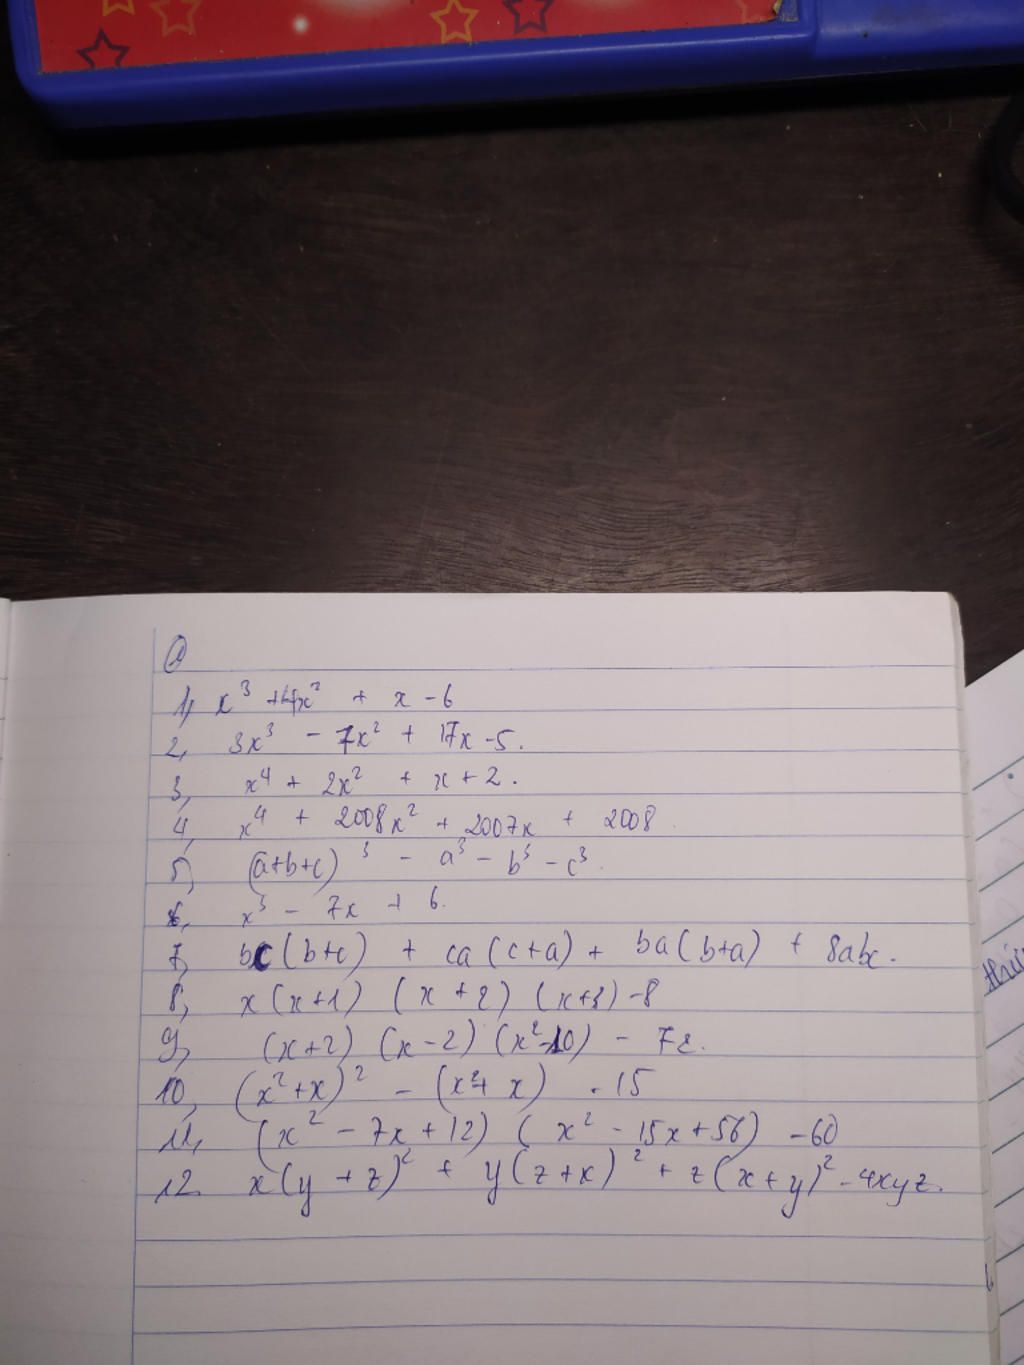 1) x³ + 4x² + x - 6
2, 3x³ - 7x² + 17x - 5.
3, x⁴ + 2x² + x + 2.
4, x⁴ + 2008x² + 2007x + 2008
5) (a+b+c)³ - a³ - b³ - c³.
6, x³ - 7x + 6.
7, bc(b+c) + ca(c+a) + ba(b+a) + 8abc.
8, x(x+1) (x+2) (x+3) - 8
9, (x+2) (x-2) (x²-10) - 72.
10, (x²+x)² - (x²+x) - 15
11, (x² - 7x + 12) (x² - 15x + 56) - 60
12. x(y+z)² + y(z+x)² + z(x+y)² - 4xyz.